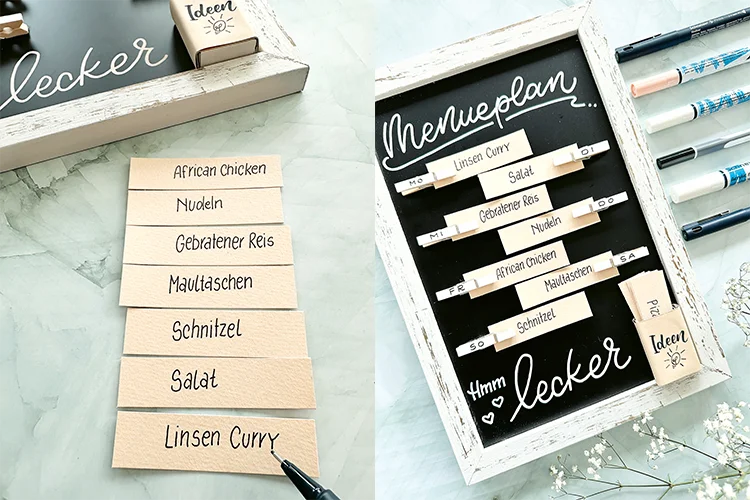 Ideen
lecker
African Chicken
Nudeln
Gebratener Reis
Maultaschen
Schnitzel
Salat
Linsen Curry
Menueplan...
MO
Linsen Curry
DI
Salat
MI
Gebratener Reis
DO
Nudeln
FR
African Chicken
SA
Maultaschen
SO
Schnitzel
Hmm
lecker
Ideen